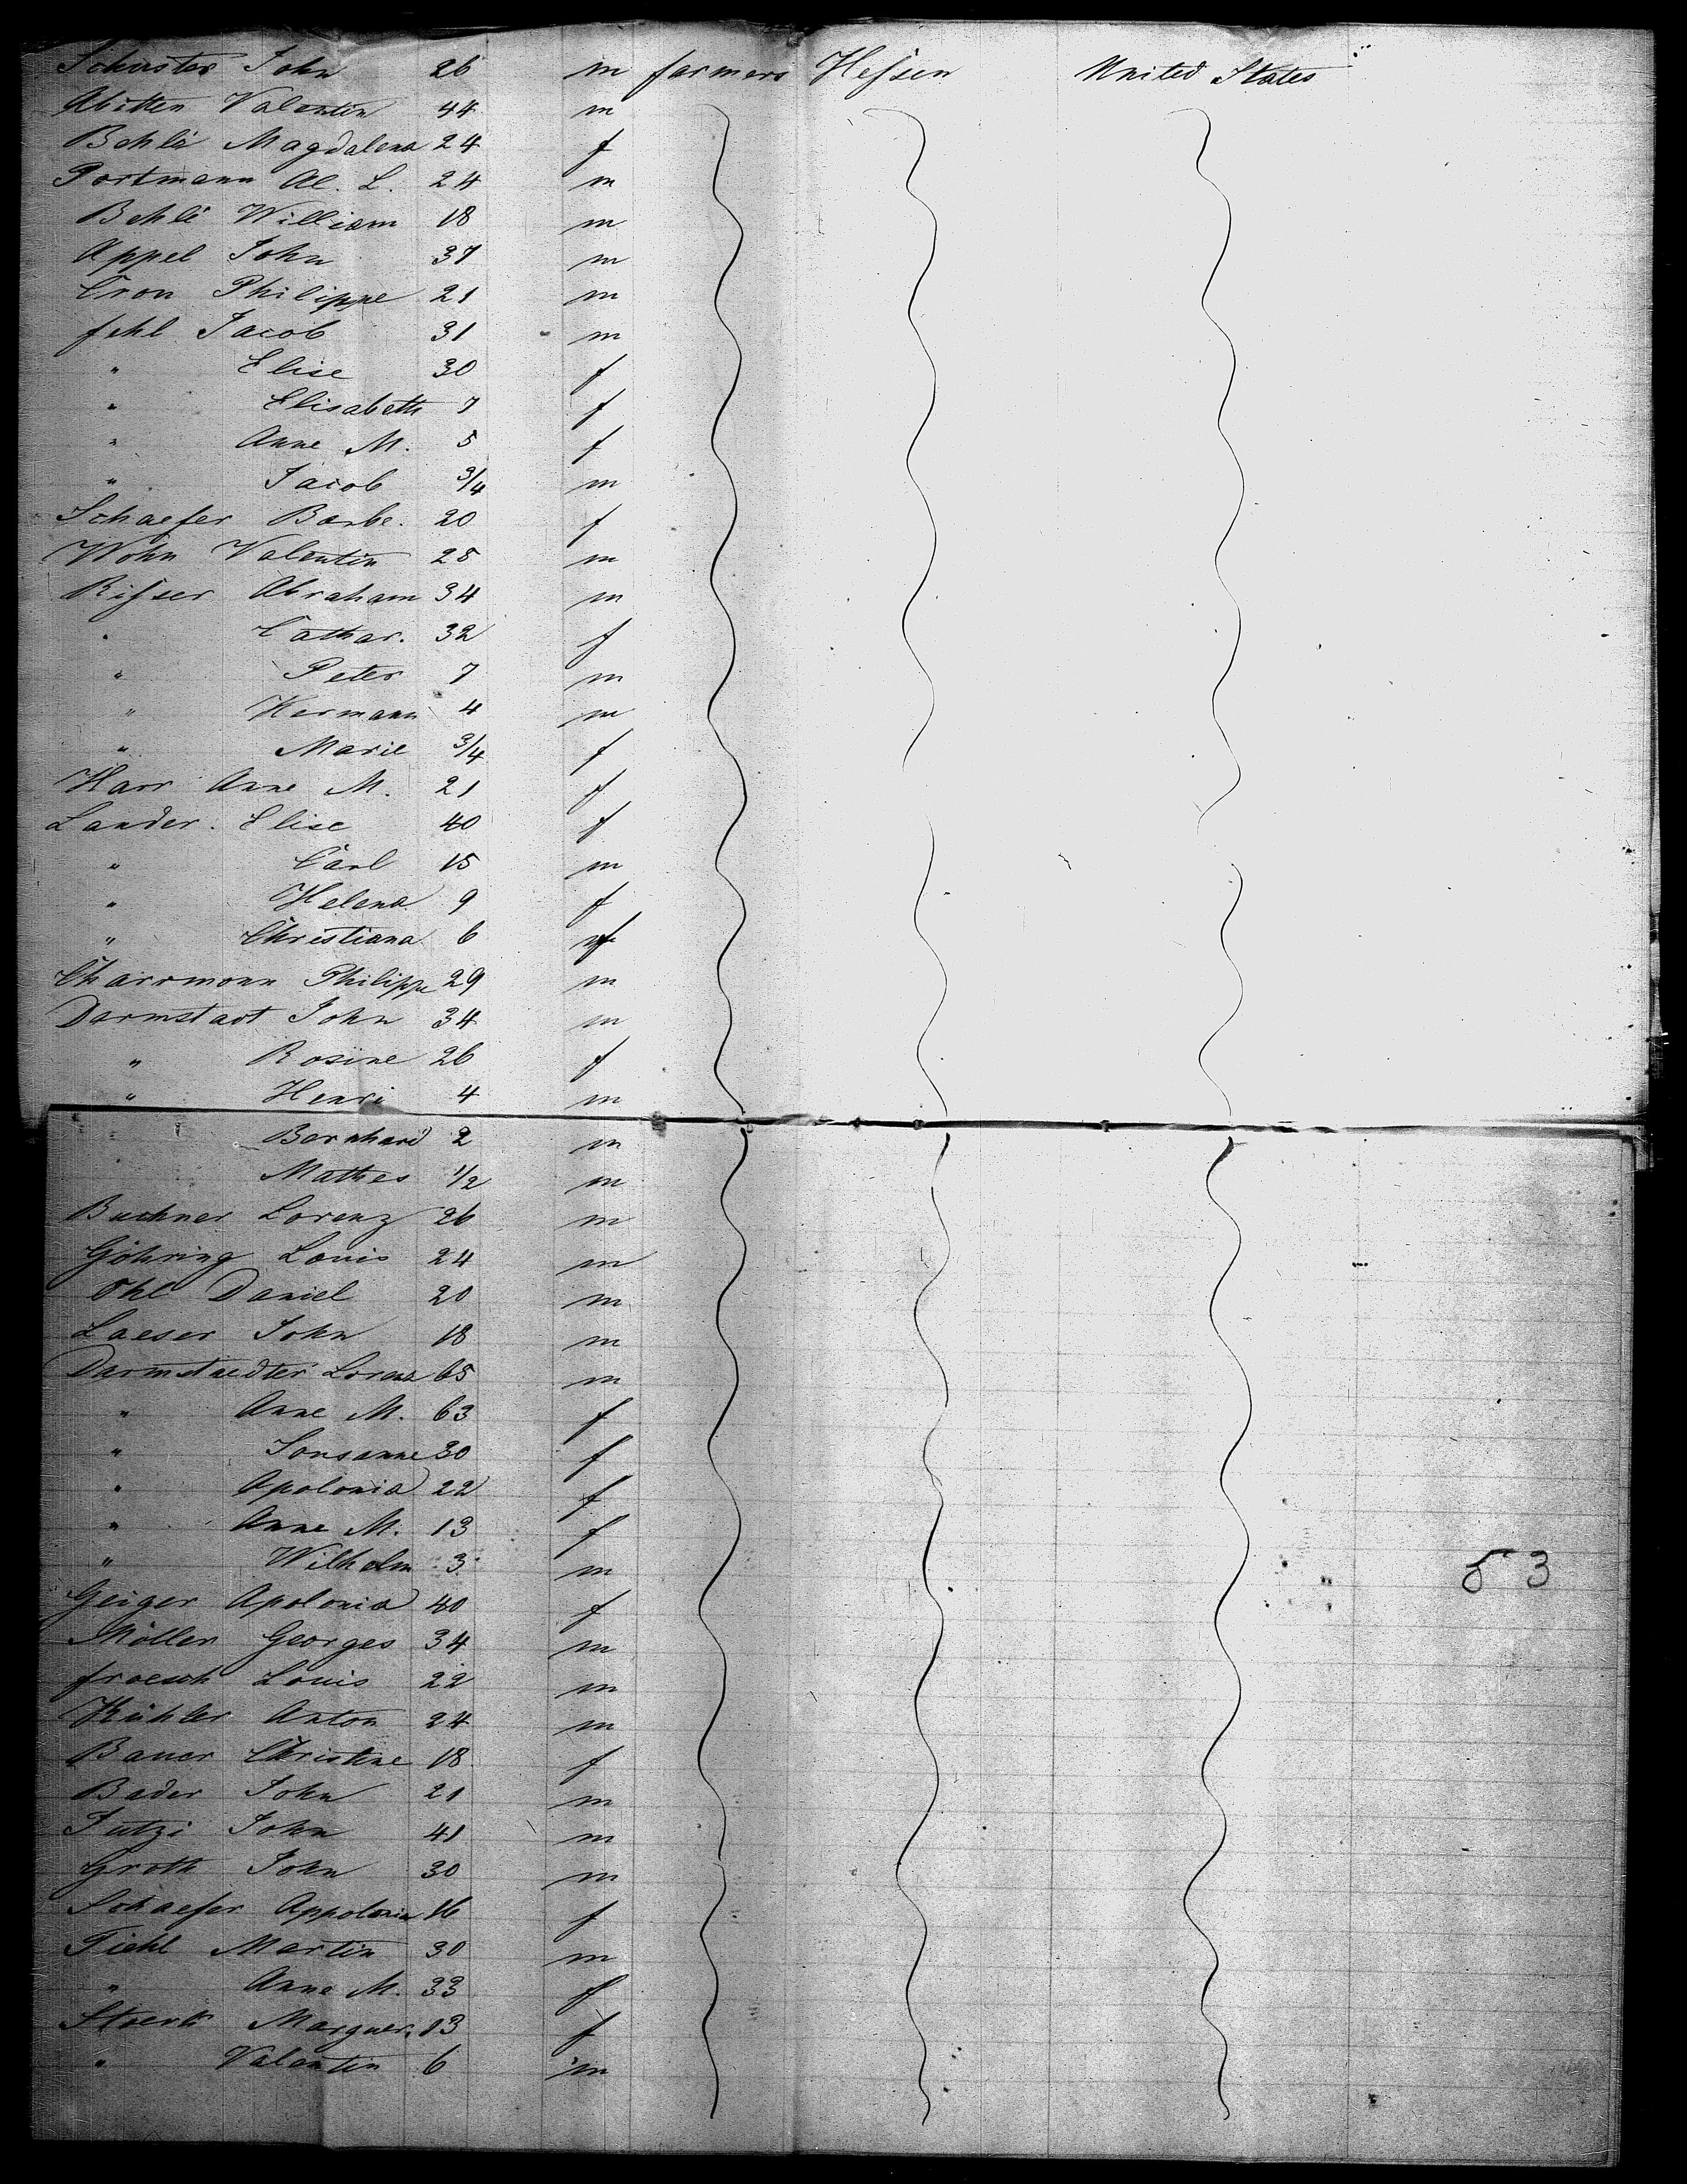 Schuster John 26 m farmers Hessen United States
Valentin 44 m
Behlé Magdalena 24 f
Portmann Al. L. 24 m
Behlé William 18 m
Appel John 37 m
Cron Philippe 21 m
fehl Jacob 31 m
" Elise 30 f
" Elisabeth 7 f
" Anne M. 5 f
" Jacob 3/4 m
Schaefer Barbe. 20 f
Wohn Valentin 28 m
Risser Abraham 34 m
" Cathar. 32 f
" Peter 7 m
" Hermann 4 m
" Marie 3/4 f
Harr Anne M. 21 f
Lander. Elise 40 f
" Carl 15 m
" Helena 9 f
" Christiana 6 f
Charrmann Philippe 29 m
Darmstadt John 34 m
" Rosine 26 f
" Henri 4 m
Bernhard 2 m
Mathes 1/2 m
Buchner Lorenz 26 m
Göhring Louis 24 m
Ohl Daniel 20 m
Laeser John 18 m
Darmstaedter Lorenz 65 m
" Anne M. 63 f
" Sousanne 30 f
" Apolonia 22 f
" Anne M. 13 f
" Wilhelm 3 m
Geiger Apolonia 40 f
Möller Georges 34 m
froesch Louis 22 m
Kühler Anton 24 m
Bauer Christine 18 f
Bader John 21 m
Jutzi John 41 m
Groth John 30 m
Schaefer Appolonia 16 f
Tiehl Martin 30 m
" Anne M. 33 f
Stoerk Marguer. 13 f
" Valentin 6 m
53